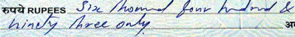 रुपये RUPEES Six thousand four hundred &
ninety three only